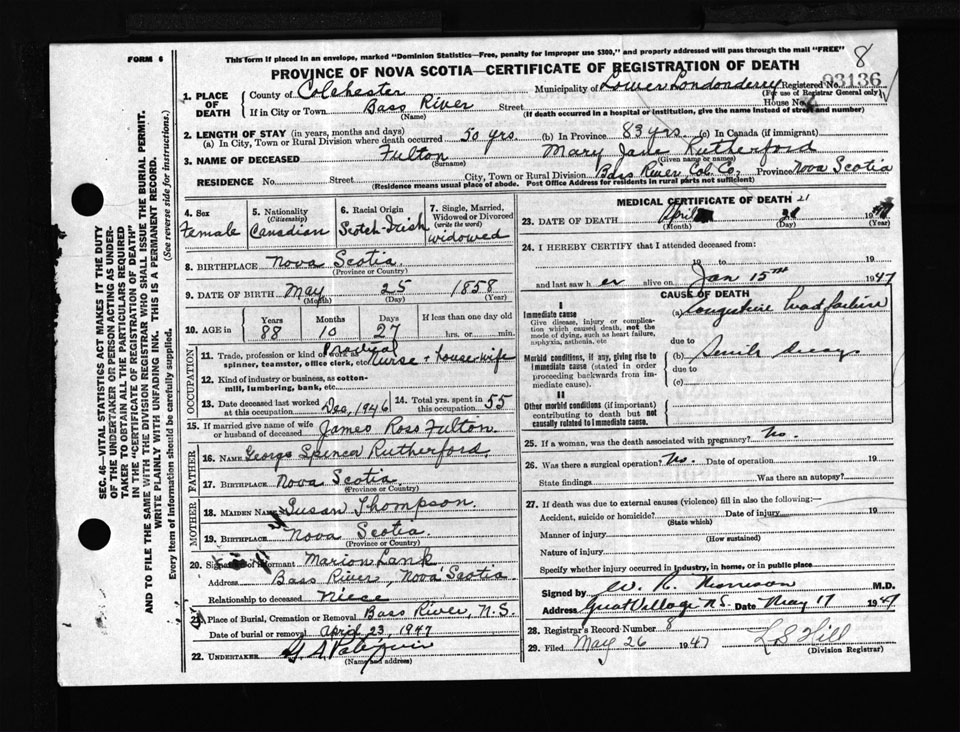 FORM 6
This form if placed in an envelope, marked "Dominion Statistics—Free, penalty for improper use $300," and properly addressed will pass through the mail "FREE"
8
PROVINCE OF NOVA SCOTIA—CERTIFICATE OF REGISTRATION OF DEATH
1. PLACE OF DEATH
County of Colchester Municipality of Lower Londonderry Registered No. 03136
(For use of Registrar General only)
If in City or Town Bass River Street House No.
(Name) (If death occurred in a hospital or institution, give the name instead of street and number)
2. LENGTH OF STAY (in years, months and days)
(a) In City, Town or Rural Division where death occurred 50 yrs. (b) In Province 83 yrs. (c) In Canada (if immigrant)
3. NAME OF DECEASED Fulton Mary Jane Rutherford
(Surname) (Given name or names)
RESIDENCE No. Street City, Town or Rural Division Bass River Col. Co. Province Nova Scotia
(Residence means usual place of abode. Post Office Address for residents in rural parts not sufficient)
SEC. 46—VITAL STATISTICS ACT MAKES IT THE DUTY
OF THE UNDERTAKER OR PERSON ACTING AS UNDER-
TAKER TO OBTAIN ALL THE PARTICULARS REQUIRED
IN THE "CERTIFICATE OF REGISTRATION OF DEATH"
AND TO FILE THE SAME WITH THE DIVISION REGISTRAR WHO SHALL ISSUE THE BURIAL PERMIT.
WRITE PLAINLY WITH UNFADING INK. THIS IS A PERMANENT RECORD.
Every item of Information should be carefully supplied. (See reverse side for instructions.)
4. Sex
Female
5. Nationality
(Citizenship)
Canadian
6. Racial Origin
Scotch-Irish
7. Single, Married,
Widowed or Divorced
(write the word)
widowed
8. BIRTHPLACE Nova Scotia
(Province or Country)
9. DATE OF BIRTH May 25 1858
(Month) (Day) (Year)
10. AGE in Years Months Days If less than one day old
88 10 27 hrs. or min.
OCCUPATION
11. Trade, profession or kind of work as
spinner, teamster, office clerk, etc. Practical Nurse + housewife
12. Kind of industry or business, as cotton-
mill, lumbering, bank, etc.
13. Date deceased last worked
at this occupation Dec, 1946
14. Total yrs. spent in
this occupation 55
15. If married give name of wife
or husband of deceased James Ross Fulton
FATHER
16. NAME George Spencer Rutherford
17. BIRTHPLACE Nova Scotia
(Province or Country)
MOTHER
18. MAIDEN NAME Susan Thompson
19. BIRTHPLACE Nova Scotia
(Province or Country)
20. Signature of informant Marion Lank
Address Bass River, Nova Scotia
Relationship to deceased Niece
21. Place of Burial, Cremation or Removal Bass River, N.S.
Date of burial or removal April 23, 1947
22. UNDERTAKER
(Name and address)
MEDICAL CERTIFICATE OF DEATH
23. DATE OF DEATH April 21 1947
(Month) (Day) (Year)
24. I HEREBY CERTIFY that I attended deceased from:
19 to 19
and last saw her alive on Jan 15TH 1947
CAUSE OF DEATH
I
Immediate cause
Give disease, injury or complica-
tion which caused death, not the
mode of dying, such as heart failure,
asphyxia, asthenia, etc.
(a) Congestive
due to
Morbid conditions, if any, giving rise to
immediate cause (stated in order
proceeding backwards from im-
mediate cause).
(b) Senile decay
due to
(c)
II
Other morbid conditions (if important)
contributing to death but not
causally related to immediate cause.
25. If a woman, was the death associated with pregnancy? No.
26. Was there a surgical operation? No. Date of operation
State findings Was there an autopsy?
27. If death was due to external causes (violence) fill in also the following:—
Accident, suicide or homicide? Date of injury 19
(State which)
Manner of injury
(How sustained)
Nature of injury
Specify whether injury occurred in Industry, in home, or in public place
Signed by W. R. Morrison M.D.
Address Great Village N.S. Date May 17 1947
28. Registrar's Record Number 8
29. Filed May 26 1947 L S Hill
(Division Registrar)